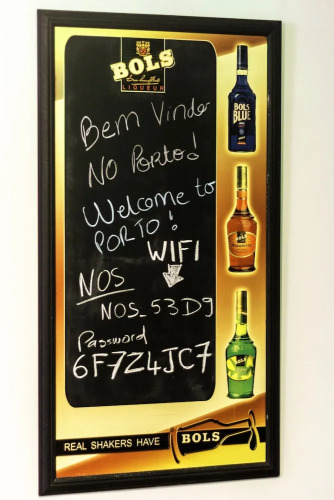 BOLS
LIQUEUR
Bem Vindo
NO PORTO!
Welcome to
PORTO!
WIFI
NOS
NOS_53D9
Password
6F7Z4JC7
BOLS
BLUE
REAL SHAKERS HAVE BOLS